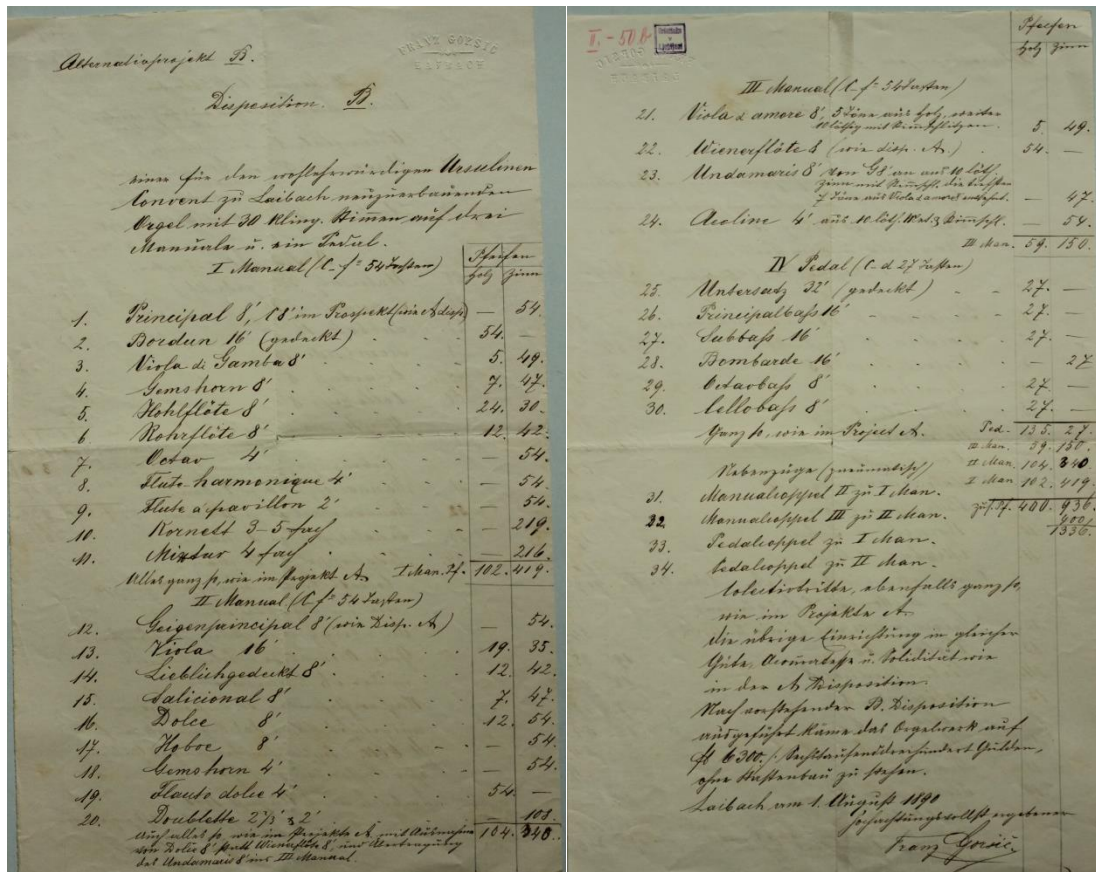 FRANZ GORŠIČ
LAIBACH
Alternativprojekt B.
Disposition. B.
einer für den wohlehrwürdigen Ursulinen
Convent zu Laibach neuzuerbauenden
Orgel mit 30 kling. Stimen auf drei
Manuale u. ein Pedal.
Pfeifen
I Manual (C-f³ 54 Tasten) Holz Zinn
1. Principal 8', C8' im Prospekt (wie A disp.) — 54.
2. Bordun 16' (gedeckt) 54. —
3. Viola di Gamba 8' 5. 49.
4. Gemshorn 8' 7. 47.
5. Hohlflöte 8' 24. 30.
6. Rohrflöte 8' 12. 42.
7. Octav 4' — 54.
8. Flute harmonique 4' — 54.
9. Flute a pavillon 2' — 54.
10. Kornett 3-5 fach — 219.
11. Mixtur 4 fach — 216.
Alles ganz so, wie im Projekt A. I Man. Pf. 102. 419.
II Manual (C-f³ 54 Tasten)
12. Geigenprincipal 8' (wie Disp. A) — 54.
13. Viola 16' 19. 35.
14. Lieblichgedeckt 8' 12. 42.
15. Salicional 8' 7. 47.
16. Dolce 8' 12. 54.
17. Hoboe 8' — 54.
18. Gemshorn 4' — 54.
19. Flauto dolce 4' 54 —
20. Doublette 2⅔' & 2' — 108.
Auch alles so, wie im Projekte A mit Ausnahme 104. 340.
von Dolce 8' statt Wienerflöte 8', und Übertragung
des Undamaris 8' ins III Manual.
II. - 50 b
Pfeifen
Holz Zinn
III Manual (C-f³ 54 Tasten)
21. Viola d amore 8', 5 Töne aus Holz, weiter
10 löthig mit Stimschlitzen. 5. 49.
22. Wienerflöte 8 (wie disp. A.) 54. —
23. Undamaris 8' von G8' an aus 10 löth.
Zinn mit Stimschl. die tiefsten
7 Töne aus Viola d amore — 47.
24. Aeoline 4' aus 10 löth. Stimschl. — 54.
III Man. 59. 150.
IV Pedal (C-d 27 Tasten)
25. Untersatz 32' (gedeckt) 27. —
26. Principalbaß 16' 27. —
27. Subbass 16' 27. —
28. Bombarde 16' — 27
29. Octavbaß 8' 27. —
30. Cellobaß 8' 27. —
Ganz so, wie im Project A. Ped. 135. 27.
III Man. 59. 150.
Nebenzüge (pneumatisch) II Man. 104. 340
31. Manualcoppel II zu I Man. I Man. 102. 419.
32. Manualcoppel III zu II Man. 400. 936
400
1336.
33. Pedalcoppel zu I Man.
34. Pedalcoppel zu II Man.
Collectivtritte, ebenfalls ganz so,
wie im Projekte A.
Die übrige Einrichtung in gleicher
Güte, Accuratesse u. Solidität wie
in der A Disposition.
Nach vorstehender B. Disposition
ausgeführt käme das Orgelwerk auf
fl 6300./. Sechstausenddreihundert Gulden,
ohne Kastenbau zu stehen.
Laibach am 1. August 1890
hochachtungsvollst ergebener
Franz Goršič